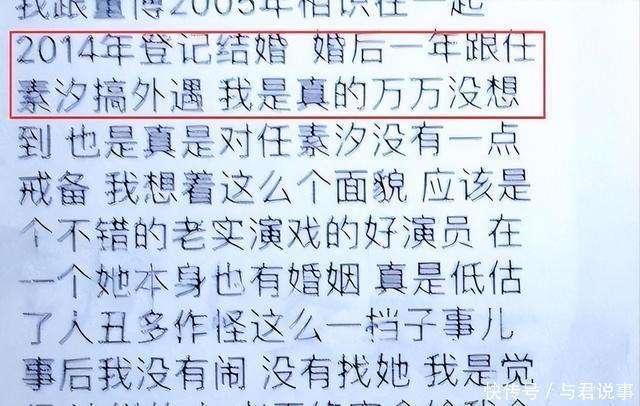 我跟董博2005年相识在一起
2014年登记结婚 婚后一年跟任
素汐搞外遇 我是真的万万没想
到 也是真是对任素汐没有一点
戒备 我想着这么个面貌 应该是
个不错的老实演戏的好演员 在
一个她本身也有婚姻 真是低估
了人丑多作怪这么一挡子事儿
事后我没有闹 没有找她 我是觉
快传号／与君说事